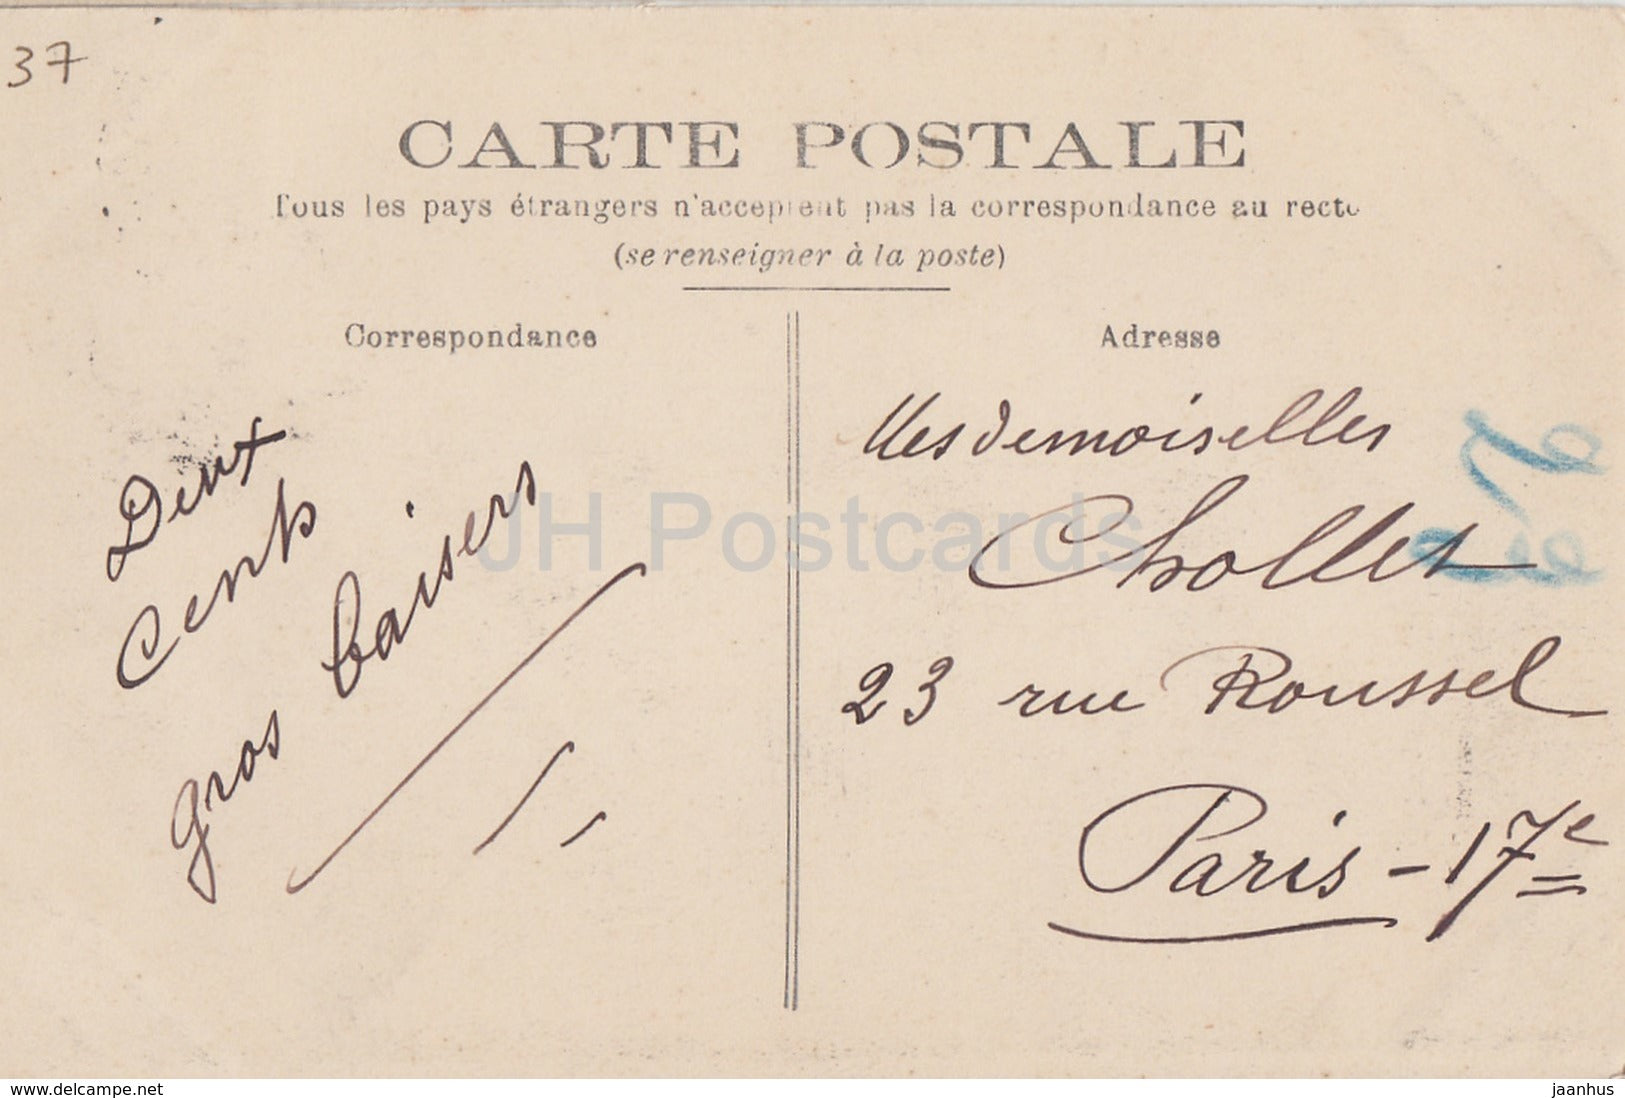 37
CARTE POSTALE
Tous les pays étrangers n'acceptent pas la correspondance au recto
(se renseigner à la poste)
Correspondance
Deux
Cents
gros baisers
Adresse
Mesdemoiselles
Chollet
23 rue Roussel
Paris - 17e
JH Postcards
www.delcampe.net
jaanhus